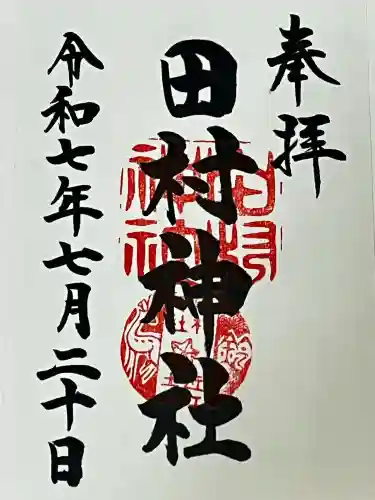 奉拝
田村神社
令和七年七月二十日